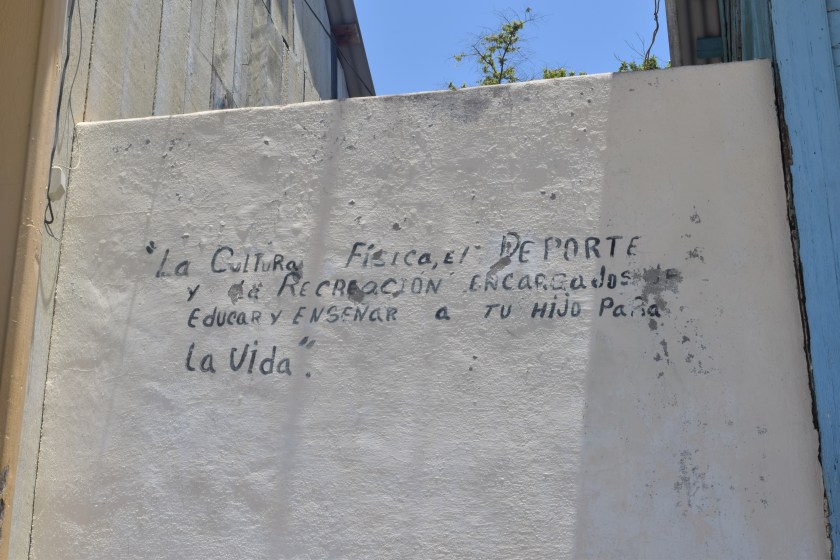 "La Cultura Física, El DEPORTE
y la RECREACIÓN ENCARGADOS DE
EDUCAR Y ENSEÑAR a TU HIJO PARA
La Vida".